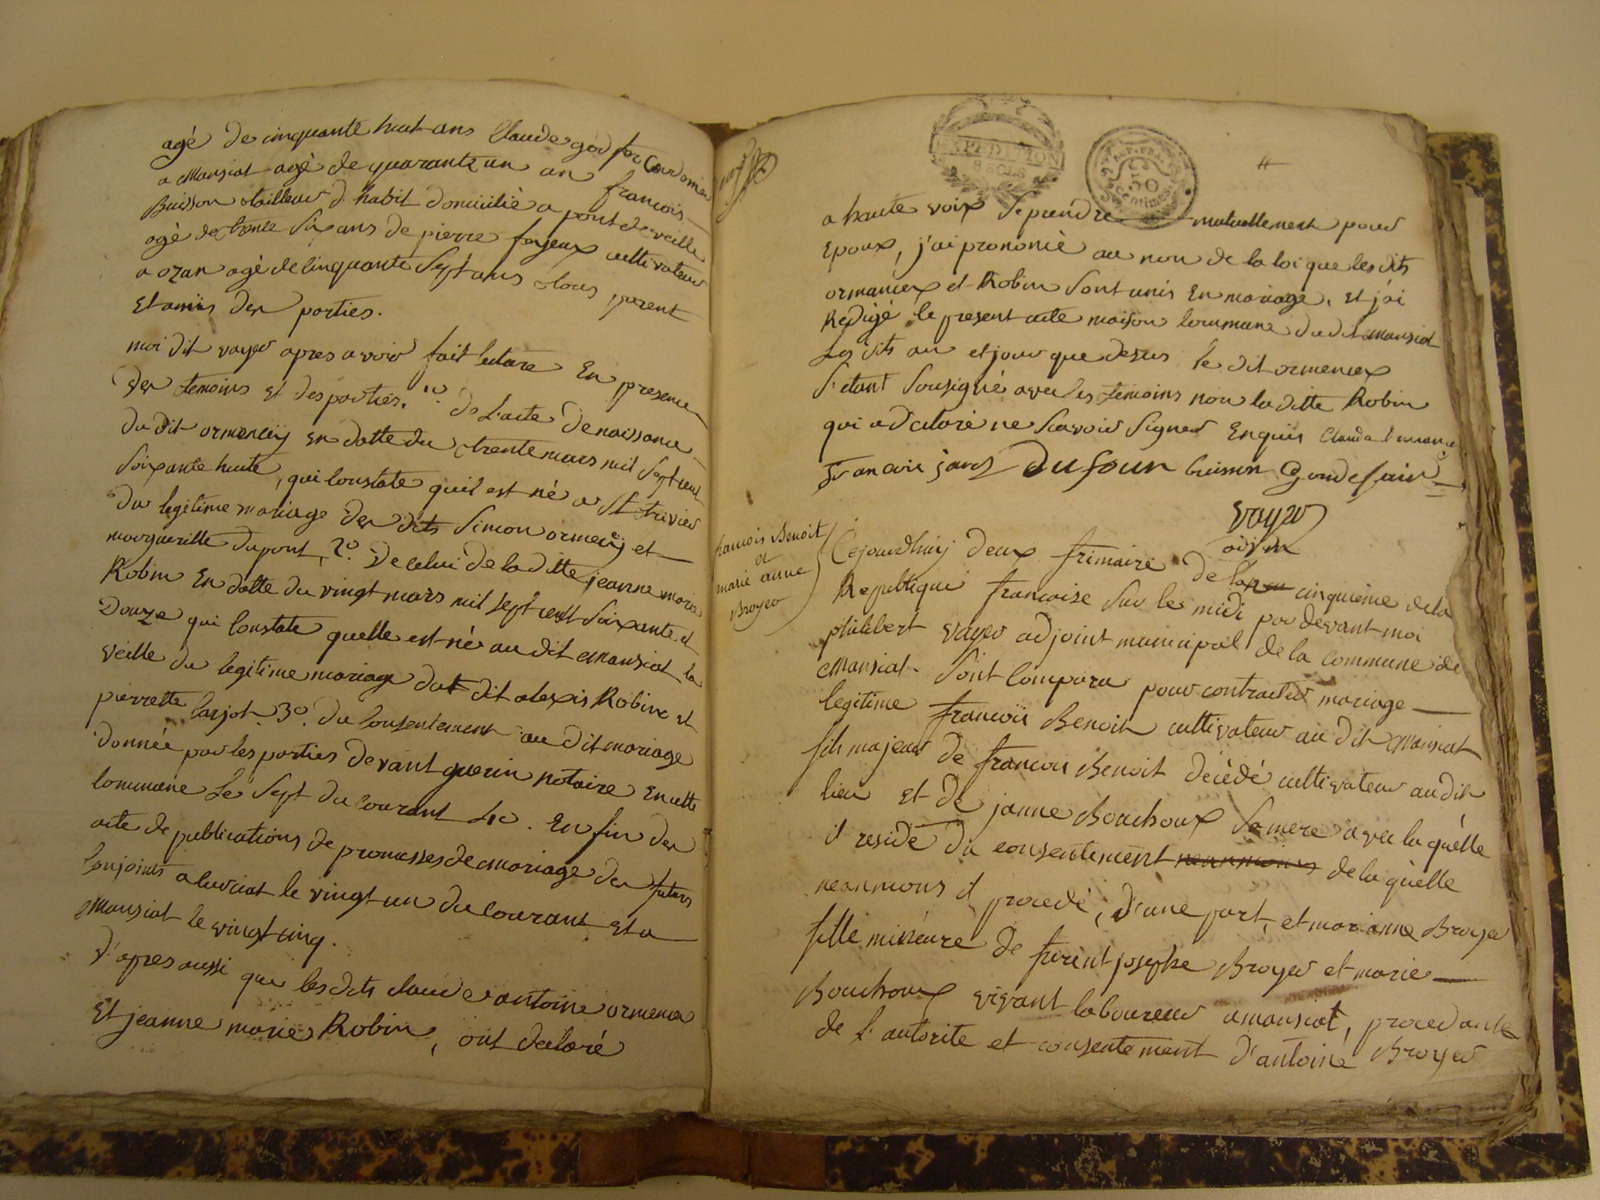 agé de cinquante huit ans Claude god for Cordonier
a Mansiat agé de quarante un an francois
Buisson tailleur d habit domicilié a pont de veille
agé de trente six ans de pierre forjeux cultivateur
a ozan agé de cinquante Sept ans tous parent
Et amis der parties.
moi dit voyer apres avoir fait lecture En presence
der temoins Et des parties. 1º de L'acte de naissance
du dit ormency En datte du trente mars mil Sept cent
Soixante huite, qui Constate quil est né a St trivier
du legitime mariage der dits Simon ormency et
marguerille dupont, 2º de celui de la ditte jeanne marie
Robin En datte du vingt mars mil Sept cent Soixante et
Douze qui Constate quelle est né au dit Mansiat la
veille du legitime mariage dit alexis Robin et
pierrette larjot. 3º. du Consentement au dit mariage
donnée par les parties devant guerin notaire En cette
Commune Le Sept du Courant 4º. En fin der
acte de publications de promesses de Mariage der futurs
Conjoints a le vingt un du Courant Et a
Mansiat le vingt cinq.
D'apres aussi que les dits claude antoine ormencx
Et jeanne marie Robin, ont declaré
EXPEDITION
a haute voix Se prendre mutuellement pour
Epoux, j'ai prononcé au non de la loi que les dits
ormancex et Robin Sont unis En mariage, Et j'ai
Redigé le present acte maison Commune du dit Mansiat
Les dits an et jour que desus, le dit ormencex
S'etant Sousigné avec les temoins non la ditte Robin
qui a declaré ne Scavoir Signer Enquis Claude
Dufour buisson
voyer
adjoin
francois Benoit
et
marie anne
Broyer
Cejourdhuy deux frimaire de cinquieme de la
Republique francoise Sur le midi par devant moi
philibert voyer adjoint municipal de la commune de
Mansiat. Sont Comparu pour contracter mariage
legitime francois Benoit cultivateur au dit Mansiat
fils majeur de francois Benoit décédé cultivateur au dit
lieu Et de janne Bouchoux Sa mere avec la quélle
il reside du consentement neanmoins de la quélle
neanmons il procede, d'une part, et marianne Broyer
fille mineure de josephe Broyer et marie
Bouchoux vivant laboureur a mansiat, procedante
de l'autorite et consentement d'antoine Broyer